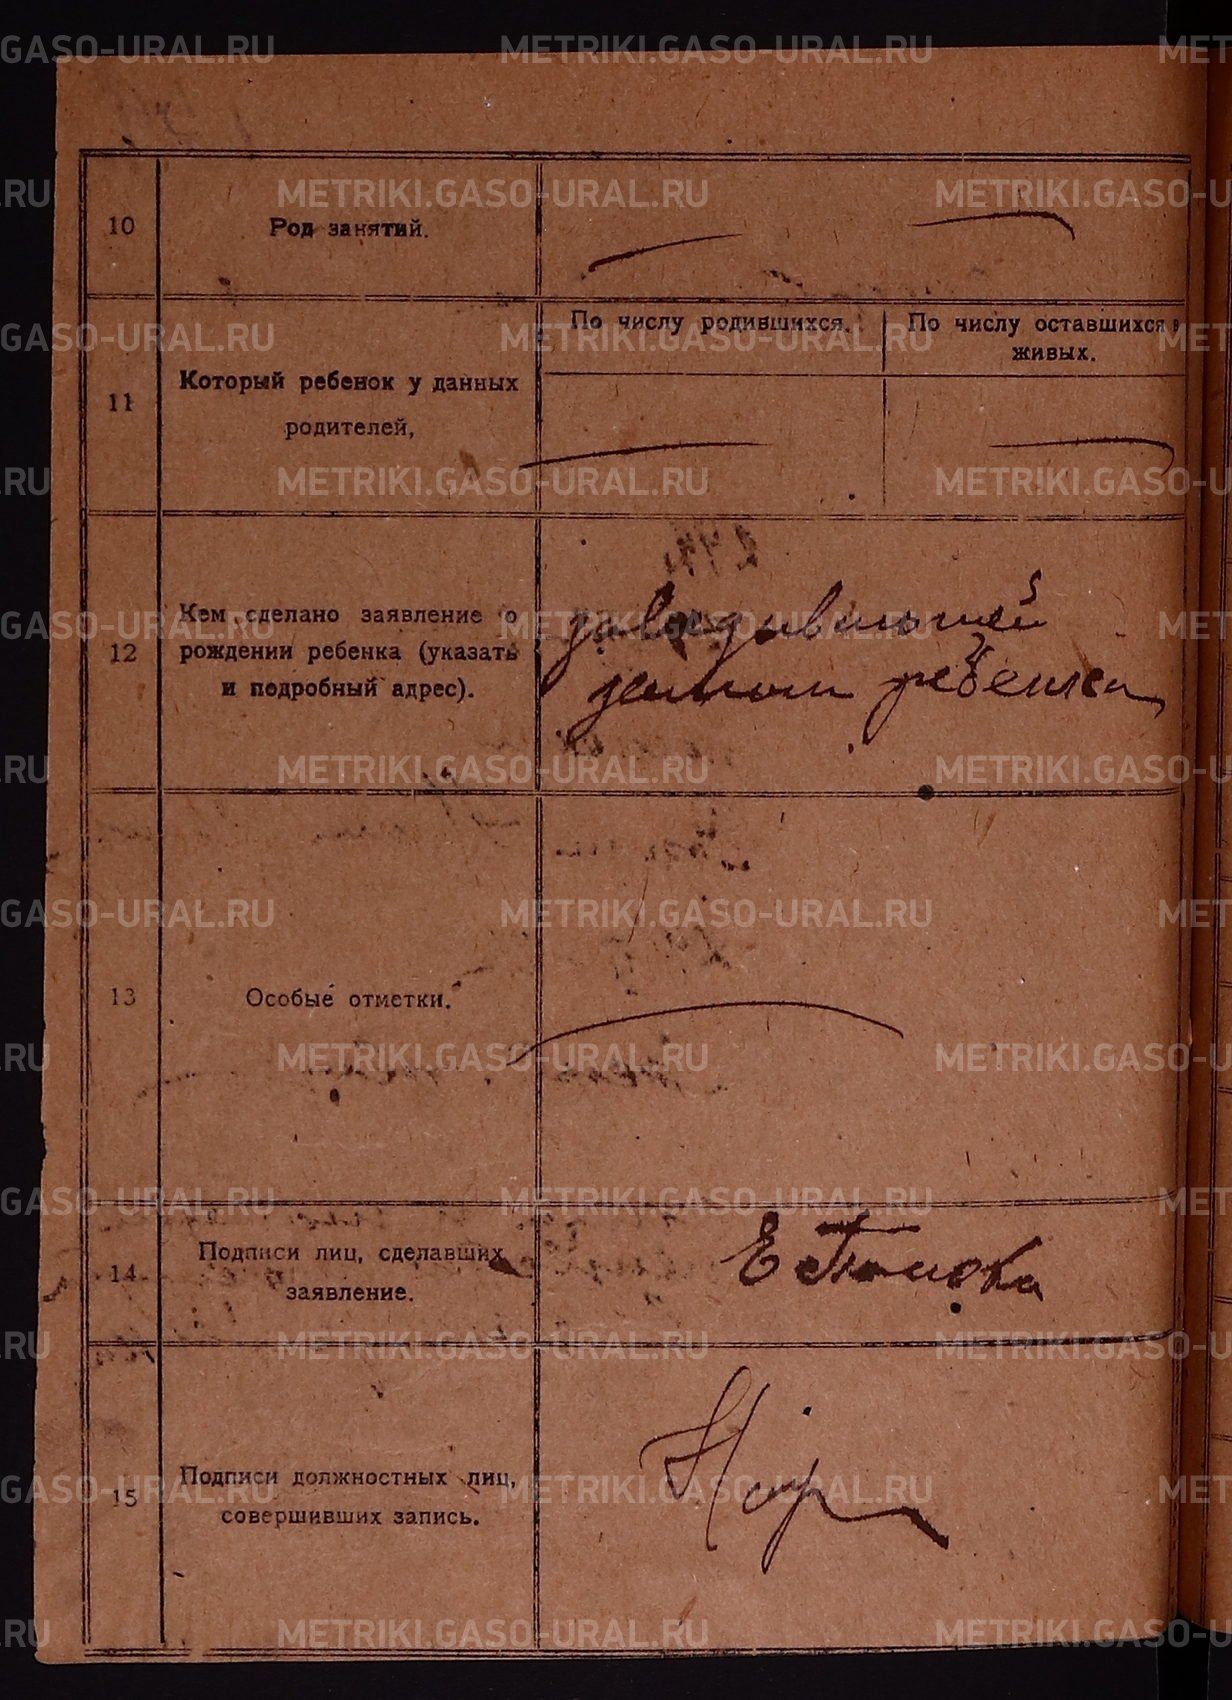 10
Род занятий.
11
Который ребенок у данных
родителей,
По числу родившихся.
По числу оставшихся в
живых.
12
Кем сделано заявление о
рождении ребенка (указать
и подробный адрес).
ребенка
13
Особые отметки.
14
Подписи лиц, сделавших
заявление.
15
Подписи должностных лиц,
совершивших запись.
METRIKI.GASO-URAL.RU